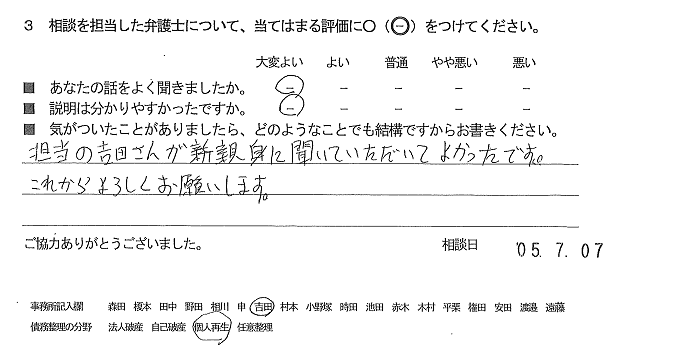 3 相談を担当した弁護士について、当てはまる評価に○（㊀）をつけてください。
大変よい よい 普通 やや悪い 悪い
■ あなたの話をよく聞きましたか。 － － － － －
■ 説明は分かりやすかったですか。 － － － － －
■ 気がついたことがありましたら、どのようなことでも結構ですからお書きください。
担当の吉田さんが新親身に聞いていただいてよかったです。
これからよろしくお願いします。
ご協力ありがとうございました。 相談日 '05. 7. 07
事務所記入欄 森田 榎本 田中 野田 相川 申 吉田 村本 小野塚 時田 池田 赤木 木村 平栗 権田 安田 渡邉 遠藤
債務整理の分野 法人破産 自己破産 個人再生 任意整理